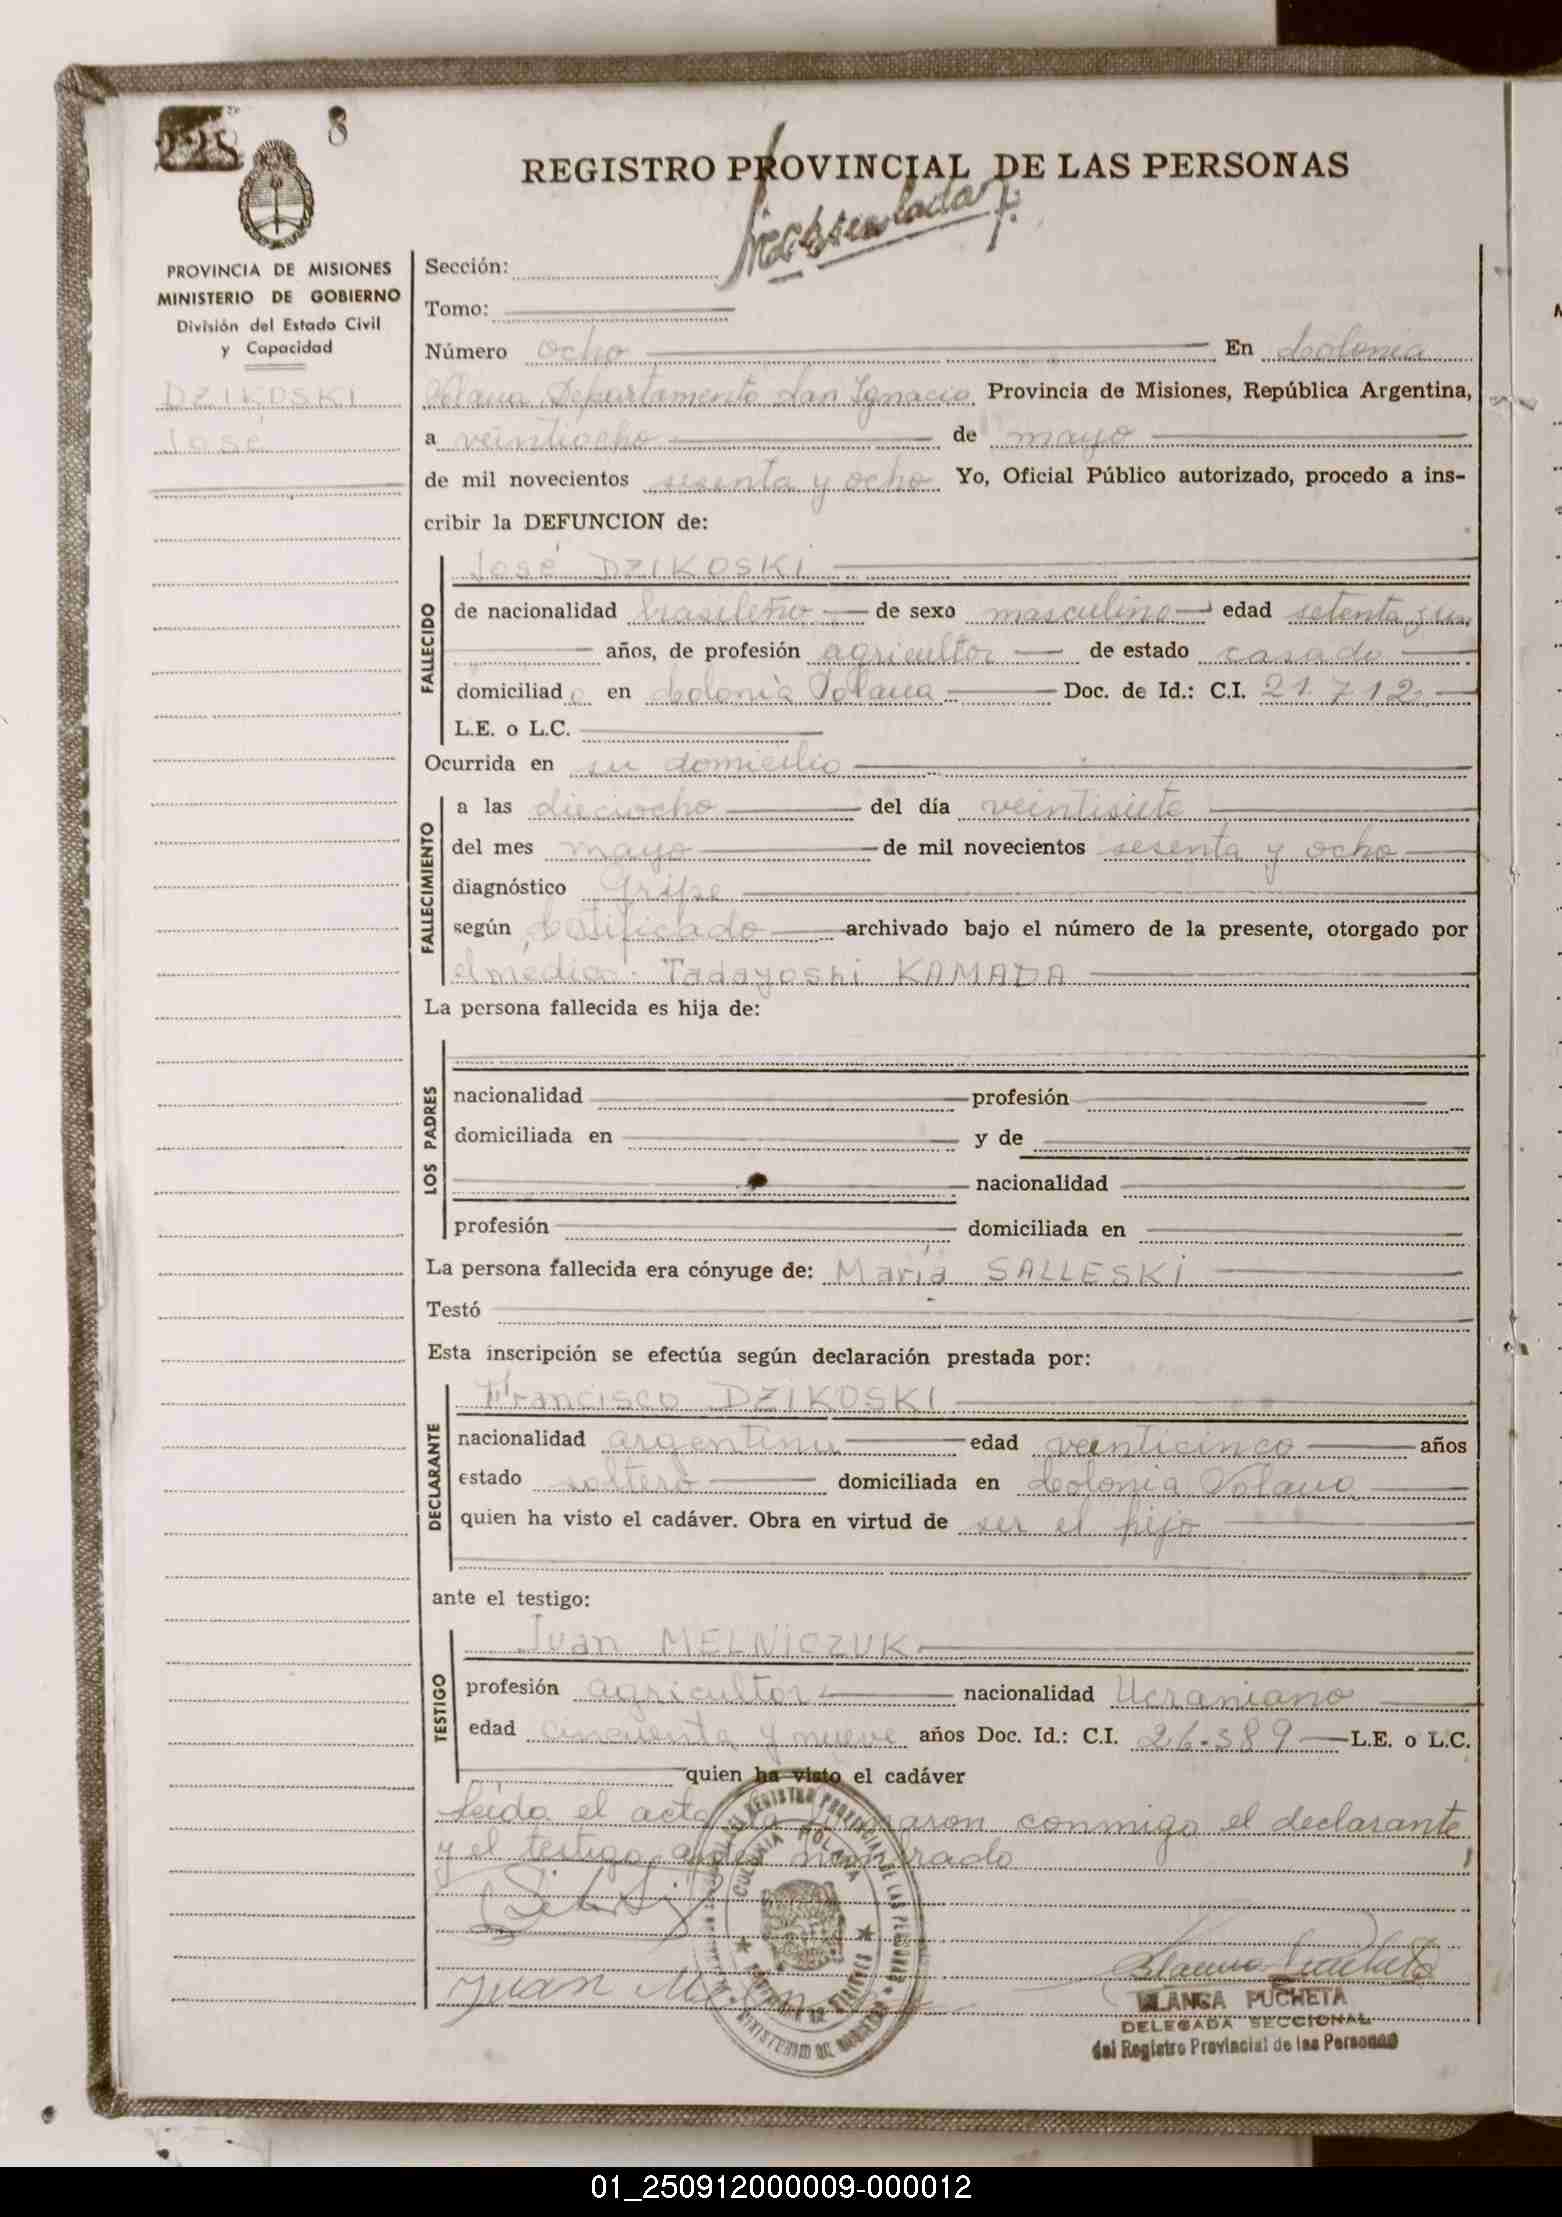 228 8
REGISTRO PROVINCIAL DE LAS PERSONAS
PROVINCIA DE MISIONES
MINISTERIO DE GOBIERNO
División del Estado Civil
y Capacidad
DZIKOSKI
José
Sección:
Tomo:
Número ocho En Colonia
Polana Departamento San Ignacio Provincia de Misiones, República Argentina,
a veintiocho de mayo
de mil novecientos sesenta y ocho Yo, Oficial Público autorizado, procedo a ins-
cribir la DEFUNCION de:
FALLECIDO
José DZIKOSKI
de nacionalidad brasileño de sexo masculino edad setenta y un
años, de profesión agricultor de estado casado
domiciliado en Colonia Polana Doc. de Id.: C.I. 21.712
L.E. o L.C.
Ocurrida en su domicilio
FALLECIMIENTO
a las dieciocho del día veintisiete
del mes mayo de mil novecientos sesenta y ocho
diagnóstico Gripe
según Certificado archivado bajo el número de la presente, otorgado por
el médico: Tadayoshi KAMADA
La persona fallecida es hija de:
LOS PADRES
nacionalidad profesión
domiciliada en y de
nacionalidad
profesión domiciliada en
La persona fallecida era cónyuge de: María SALLESKI
Testó
Esta inscripción se efectúa según declaración prestada por:
DECLARANTE
Francisco DZIKOSKI
nacionalidad argentina edad veinticinco años
estado soltero domiciliada en Colonia Polana
quien ha visto el cadáver. Obra en virtud de ser el hijo
ante el testigo:
TESTIGO
Juan MELNICZUK
profesión agricultor nacionalidad Ucraniano
edad cincuenta y nueve años Doc. Id.: C.I. 26.389 L.E. o L.C.
quien ha visto el cadáver
Leida el acta la firmaron conmigo el declarante
y el testigo antes nombrado
COLONIA POLANA
Juan
Blanca Pucheta
BLANCA PUCHETA
DELEGADA SECCIONAL
del Registro Provincial de las Personas
01_250912000009-000012